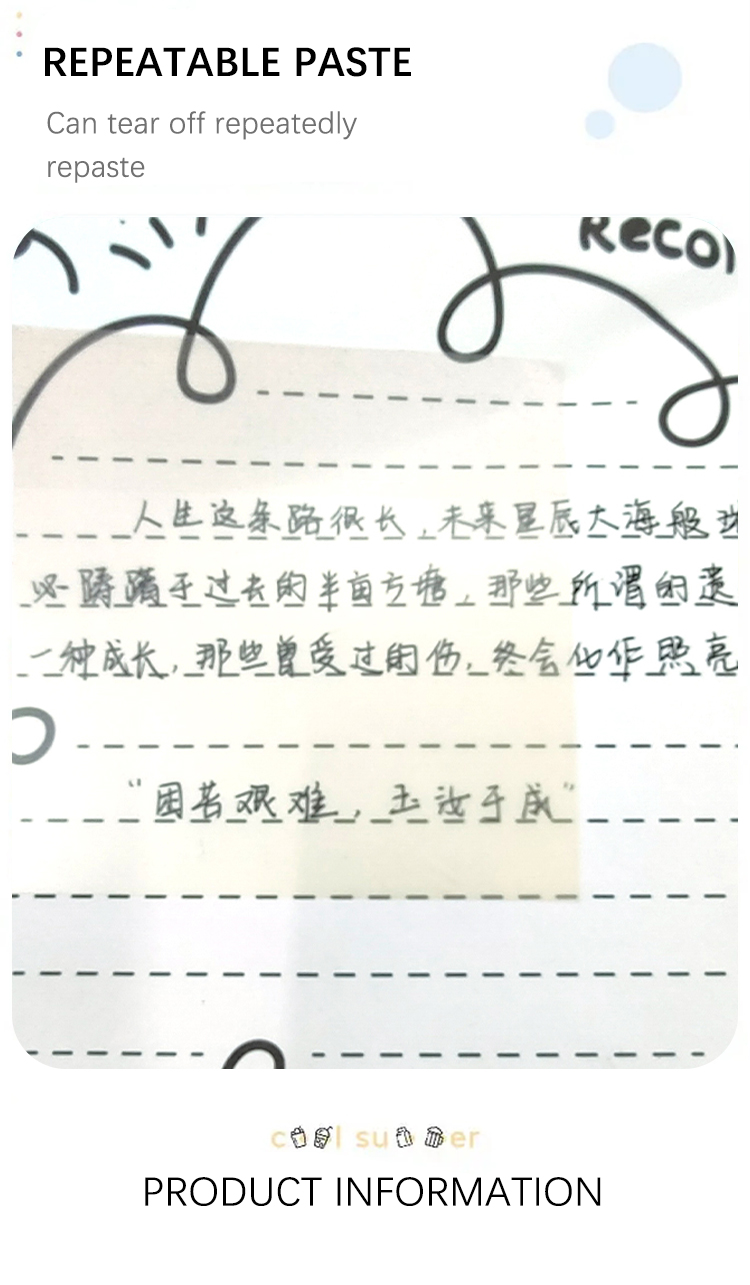 REPEATABLE PASTE
Can tear off repeatedly
repaste
人生这条路很长，未来星辰大海般
必踌躇于过去的半亩方塘。那些所谓的遗
一种成长，那些曾受过的伤，终会化作照亮
“困苦艰难，玉汝于成”
PRODUCT INFORMATION